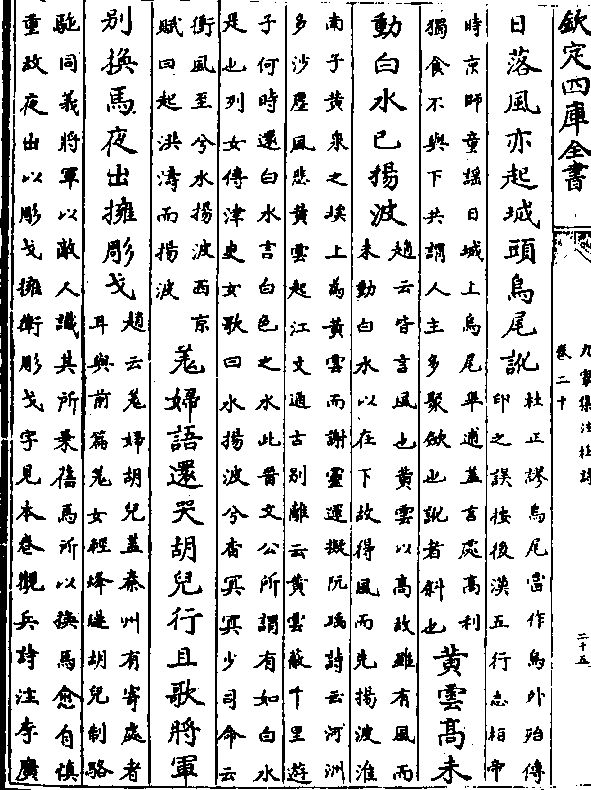 欽定四庫全書
九家集注杜詩
卷二十
二十五
日落風亦起城頭烏尾訛
杜正謬烏尾當作烏外殆傳
印之誤按後漢五行志桓帝
時京師童謡曰城上烏尾畢逋蓋言處高利
獨食不與下共謂人主多聚歛也訛者斜也
黄雲高未
動白水已揚波
趙云皆言風也黄雲以高故雖有風而
未動白水以在下故得風而先揚波淮
南子黄泉之埃上為黄雲而謝靈運擬阮瑀詩云河洲
多沙塵風悲黄雲起江文通古别離云黄雲蔽千里遊
子何時還白水言白色之水此晉文公所謂有如白水
是也列女傳津吏女歌曰水揚波兮杳冥冥少司命云
衝風至兮水揚波西京
賦曰起洪濤而揚波
羗婦語還哭胡兒行且歌將軍
别換馬夜出擁彫戈
趙云羗婦胡兒蓋秦州有寄處者
耳與前篇羗女輕烽燧胡兒制駱
駞同義將軍以敵人識其所乗舊馬所以換馬愈自慎
重故夜出以彫戈擁衛彫戈字見本卷觀兵詩注李廣